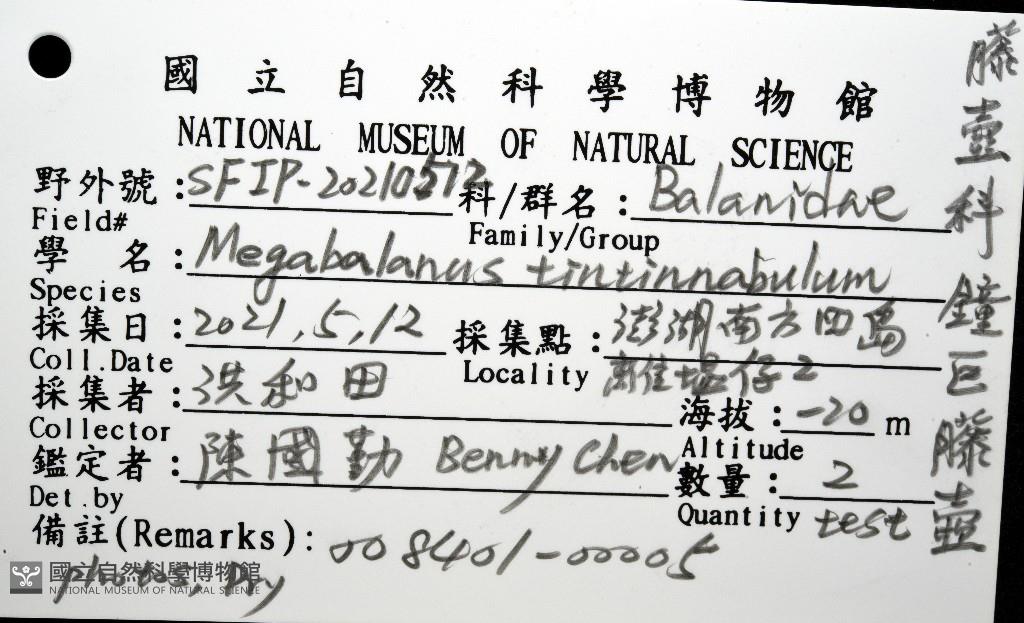 國立自然科學博物館
NATIONAL MUSEUM OF NATURAL SCIENCE
野外號:SFIP-20210512 科/群名:Balanidae
Field# Family/Group
學 名:Megabalanus tintinnabulum
Species
採集日:2021,5,12 採集點:澎湖南方四島
Coll.Date Locality 離塭仔2
採集者:洪和田 海拔:-20 m
Collector Altitude
鑑定者:陳國勤 Benny Chen 數量:2
Det.by Quantity test
備註(Remarks):008401-00005
photos, Dry
國立自然科學博物館
NATIONAL MUSEUM OF NATURAL SCIENCE
藤壺科鐘巨藤壺